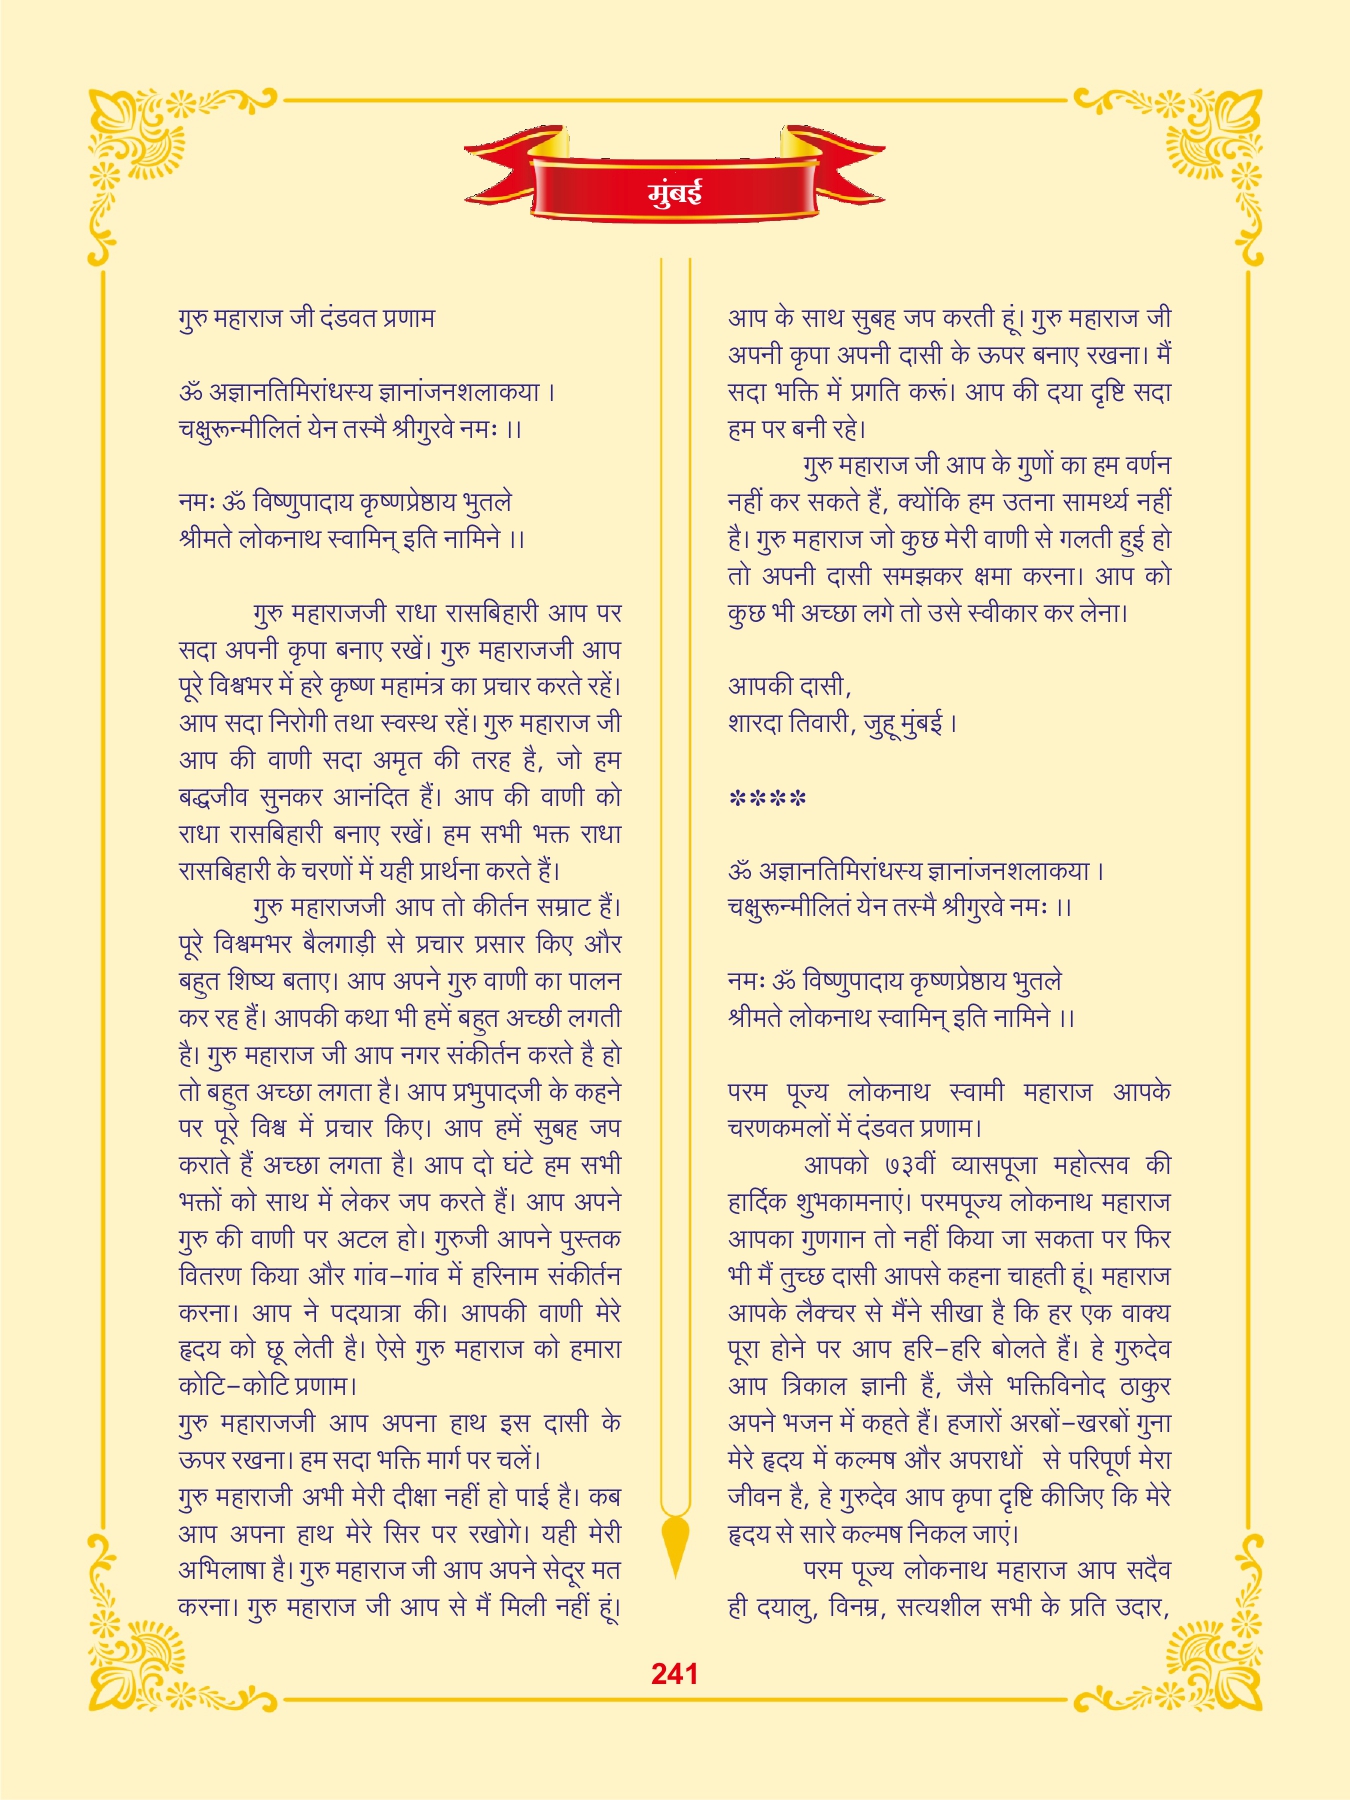 मुंबई
गुरु महाराज जी दंडवत प्रणाम
ॐ अज्ञानतिमिरांधस्य ज्ञानांजनशलाकया ।
चक्षुरून्मीलितं येन तस्मै श्रीगुरवे नमः ।।
नमः ॐ विष्णुपादाय कृष्णप्रेष्ठाय भुतले
श्रीमते लोकनाथ स्वामिन् इति नामिने ।।
गुरु महाराजजी राधा रासबिहारी आप पर
सदा अपनी कृपा बनाए रखें। गुरु महाराजजी आप
पूरे विश्वभर में हरे कृष्ण महामंत्र का प्रचार करते रहें।
आप सदा निरोगी तथा स्वस्थ रहें। गुरु महाराज जी
आप की वाणी सदा अमृत की तरह है, जो हम
बद्धजीव सुनकर आनंदित हैं। आप की वाणी को
राधा रासबिहारी बनाए रखें। हम सभी भक्त राधा
रासबिहारी के चरणों में यही प्रार्थना करते हैं।
गुरु महाराजजी आप तो कीर्तन सम्राट हैं।
पूरे विश्वमभर बैलगाड़ी से प्रचार प्रसार किए और
बहुत शिष्य बताए। आप अपने गुरु वाणी का पालन
कर रह हैं। आपकी कथा भी हमें बहुत अच्छी लगती
है। गुरु महाराज जी आप नगर संकीर्तन करते है हो
तो बहुत अच्छा लगता है। आप प्रभुपादजी के कहने
पर पूरे विश्व में प्रचार किए। आप हमें सुबह जप
कराते हैं अच्छा लगता है। आप दो घंटे हम सभी
भक्तों को साथ में लेकर जप करते हैं। आप अपने
गुरु की वाणी पर अटल हो। गुरुजी आपने पुस्तक
वितरण किया और गांव-गांव में हरिनाम संकीर्तन
करना। आप ने पदयात्रा की। आपकी वाणी मेरे
हृदय को छू लेती है। ऐसे गुरु महाराज को हमारा
कोटि-कोटि प्रणाम।
गुरु महाराजजी आप अपना हाथ इस दासी के
ऊपर रखना। हम सदा भक्ति मार्ग पर चलें।
गुरु महाराजी अभी मेरी दीक्षा नहीं हो पाई है। कब
आप अपना हाथ मेरे सिर पर रखोगे। यही मेरी
अभिलाषा है। गुरु महाराज जी आप अपने सेदूर मत
करना। गुरु महाराज जी आप से मैं मिली नहीं हूं।
आप के साथ सुबह जप करती हूं। गुरु महाराज जी
अपनी कृपा अपनी दासी के ऊपर बनाए रखना। मैं
सदा भक्ति में प्रगति करूं। आप की दया दृष्टि सदा
हम पर बनी रहे।
गुरु महाराज जी आप के गुणों का हम वर्णन
नहीं कर सकते हैं, क्योंकि हम उतना सामर्थ्य नहीं
है। गुरु महाराज जो कुछ मेरी वाणी से गलती हुई हो
तो अपनी दासी समझकर क्षमा करना। आप को
कुछ भी अच्छा लगे तो उसे स्वीकार कर लेना।
आपकी दासी,
शारदा तिवारी, जुहू मुंबई ।
****
ॐ अज्ञानतिमिरांधस्य ज्ञानांजनशलाकया ।
चक्षुरून्मीलितं येन तस्मै श्रीगुरवे नमः ।।
नमः ॐ विष्णुपादाय कृष्णप्रेष्ठाय भुतले
श्रीमते लोकनाथ स्वामिन् इति नामिने ।।
परम पूज्य लोकनाथ स्वामी महाराज आपके
चरणकमलों में दंडवत प्रणाम।
आपको ७३वीं व्यासपूजा महोत्सव की
हार्दिक शुभकामनाएं। परमपूज्य लोकनाथ महाराज
आपका गुणगान तो नहीं किया जा सकता पर फिर
भी मैं तुच्छ दासी आपसे कहना चाहती हूं। महाराज
आपके लैक्चर से मैंने सीखा है कि हर एक वाक्य
पूरा होने पर आप हरि-हरि बोलते हैं। हे गुरुदेव
आप त्रिकाल ज्ञानी हैं, जैसे भक्तिविनोद ठाकुर
अपने भजन में कहते हैं। हजारों अरबों-खरबों गुना
मेरे हृदय में कल्मष और अपराधों से परिपूर्ण मेरा
जीवन है, हे गुरुदेव आप कृपा दृष्टि कीजिए कि मेरे
हृदय से सारे कल्मष निकल जाएं।
परम पूज्य लोकनाथ महाराज आप सदैव
ही दयालु, विनम्र, सत्यशील सभी के प्रति उदार,
241